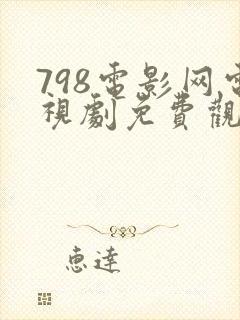 798電影网電
視劇免費觀
惠達